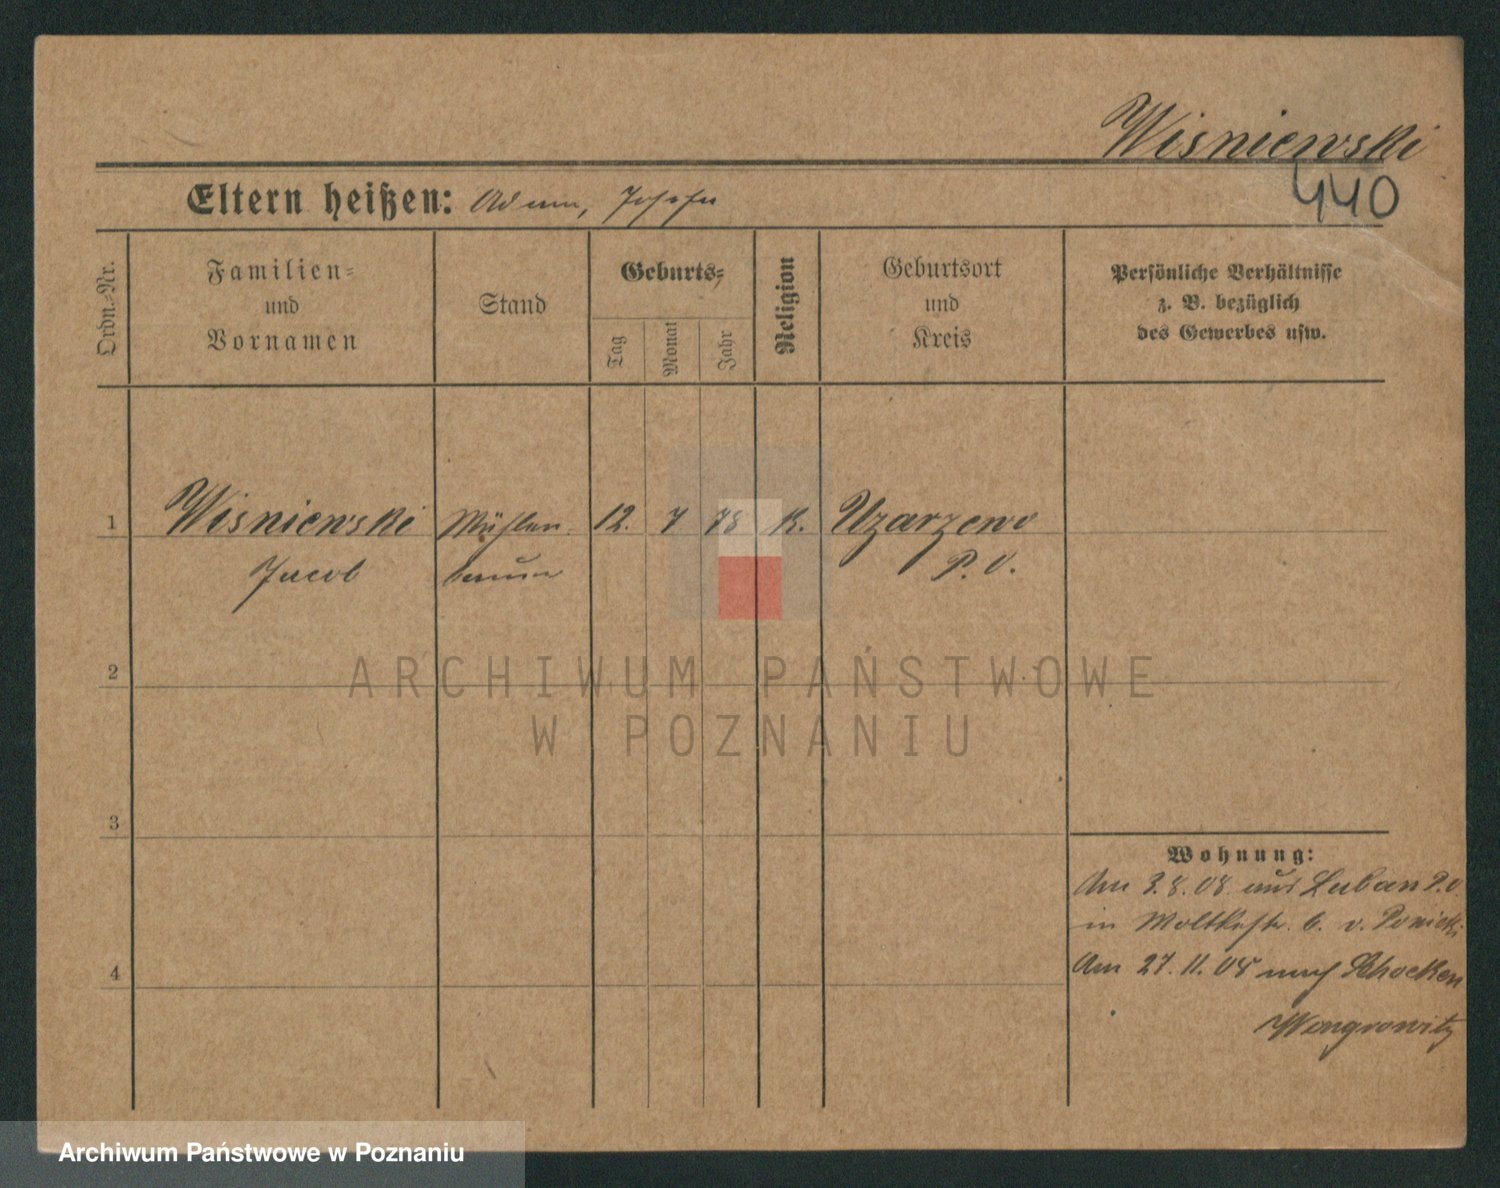 Wisniewski
440
Eltern heißen: Adam, Josefa
Ordn.-Nr.
Familien-
und
Vornamen
Stand
Geburts-
Tag
Monat
Jahr
Religion
Geburtsort
und
Kreis
Persönliche Verhältnisse
z. B. bezüglich
des Gewerbes usw.
1
Wisniewski
Mühlen
12. 7 78 K. Uzarzewo
Jacob
bauer
P. O.
2
ARCHIWUM PAŃSTWOWE
W POZNANIU
3
Wohnung:
Am 3.8.08 aus Luban P.O
in Moltkestr. 6. v. Ponicki
4
Am 27.11.08 nach Schocken
Wongrowitz
Archiwum Państwowe w Poznaniu